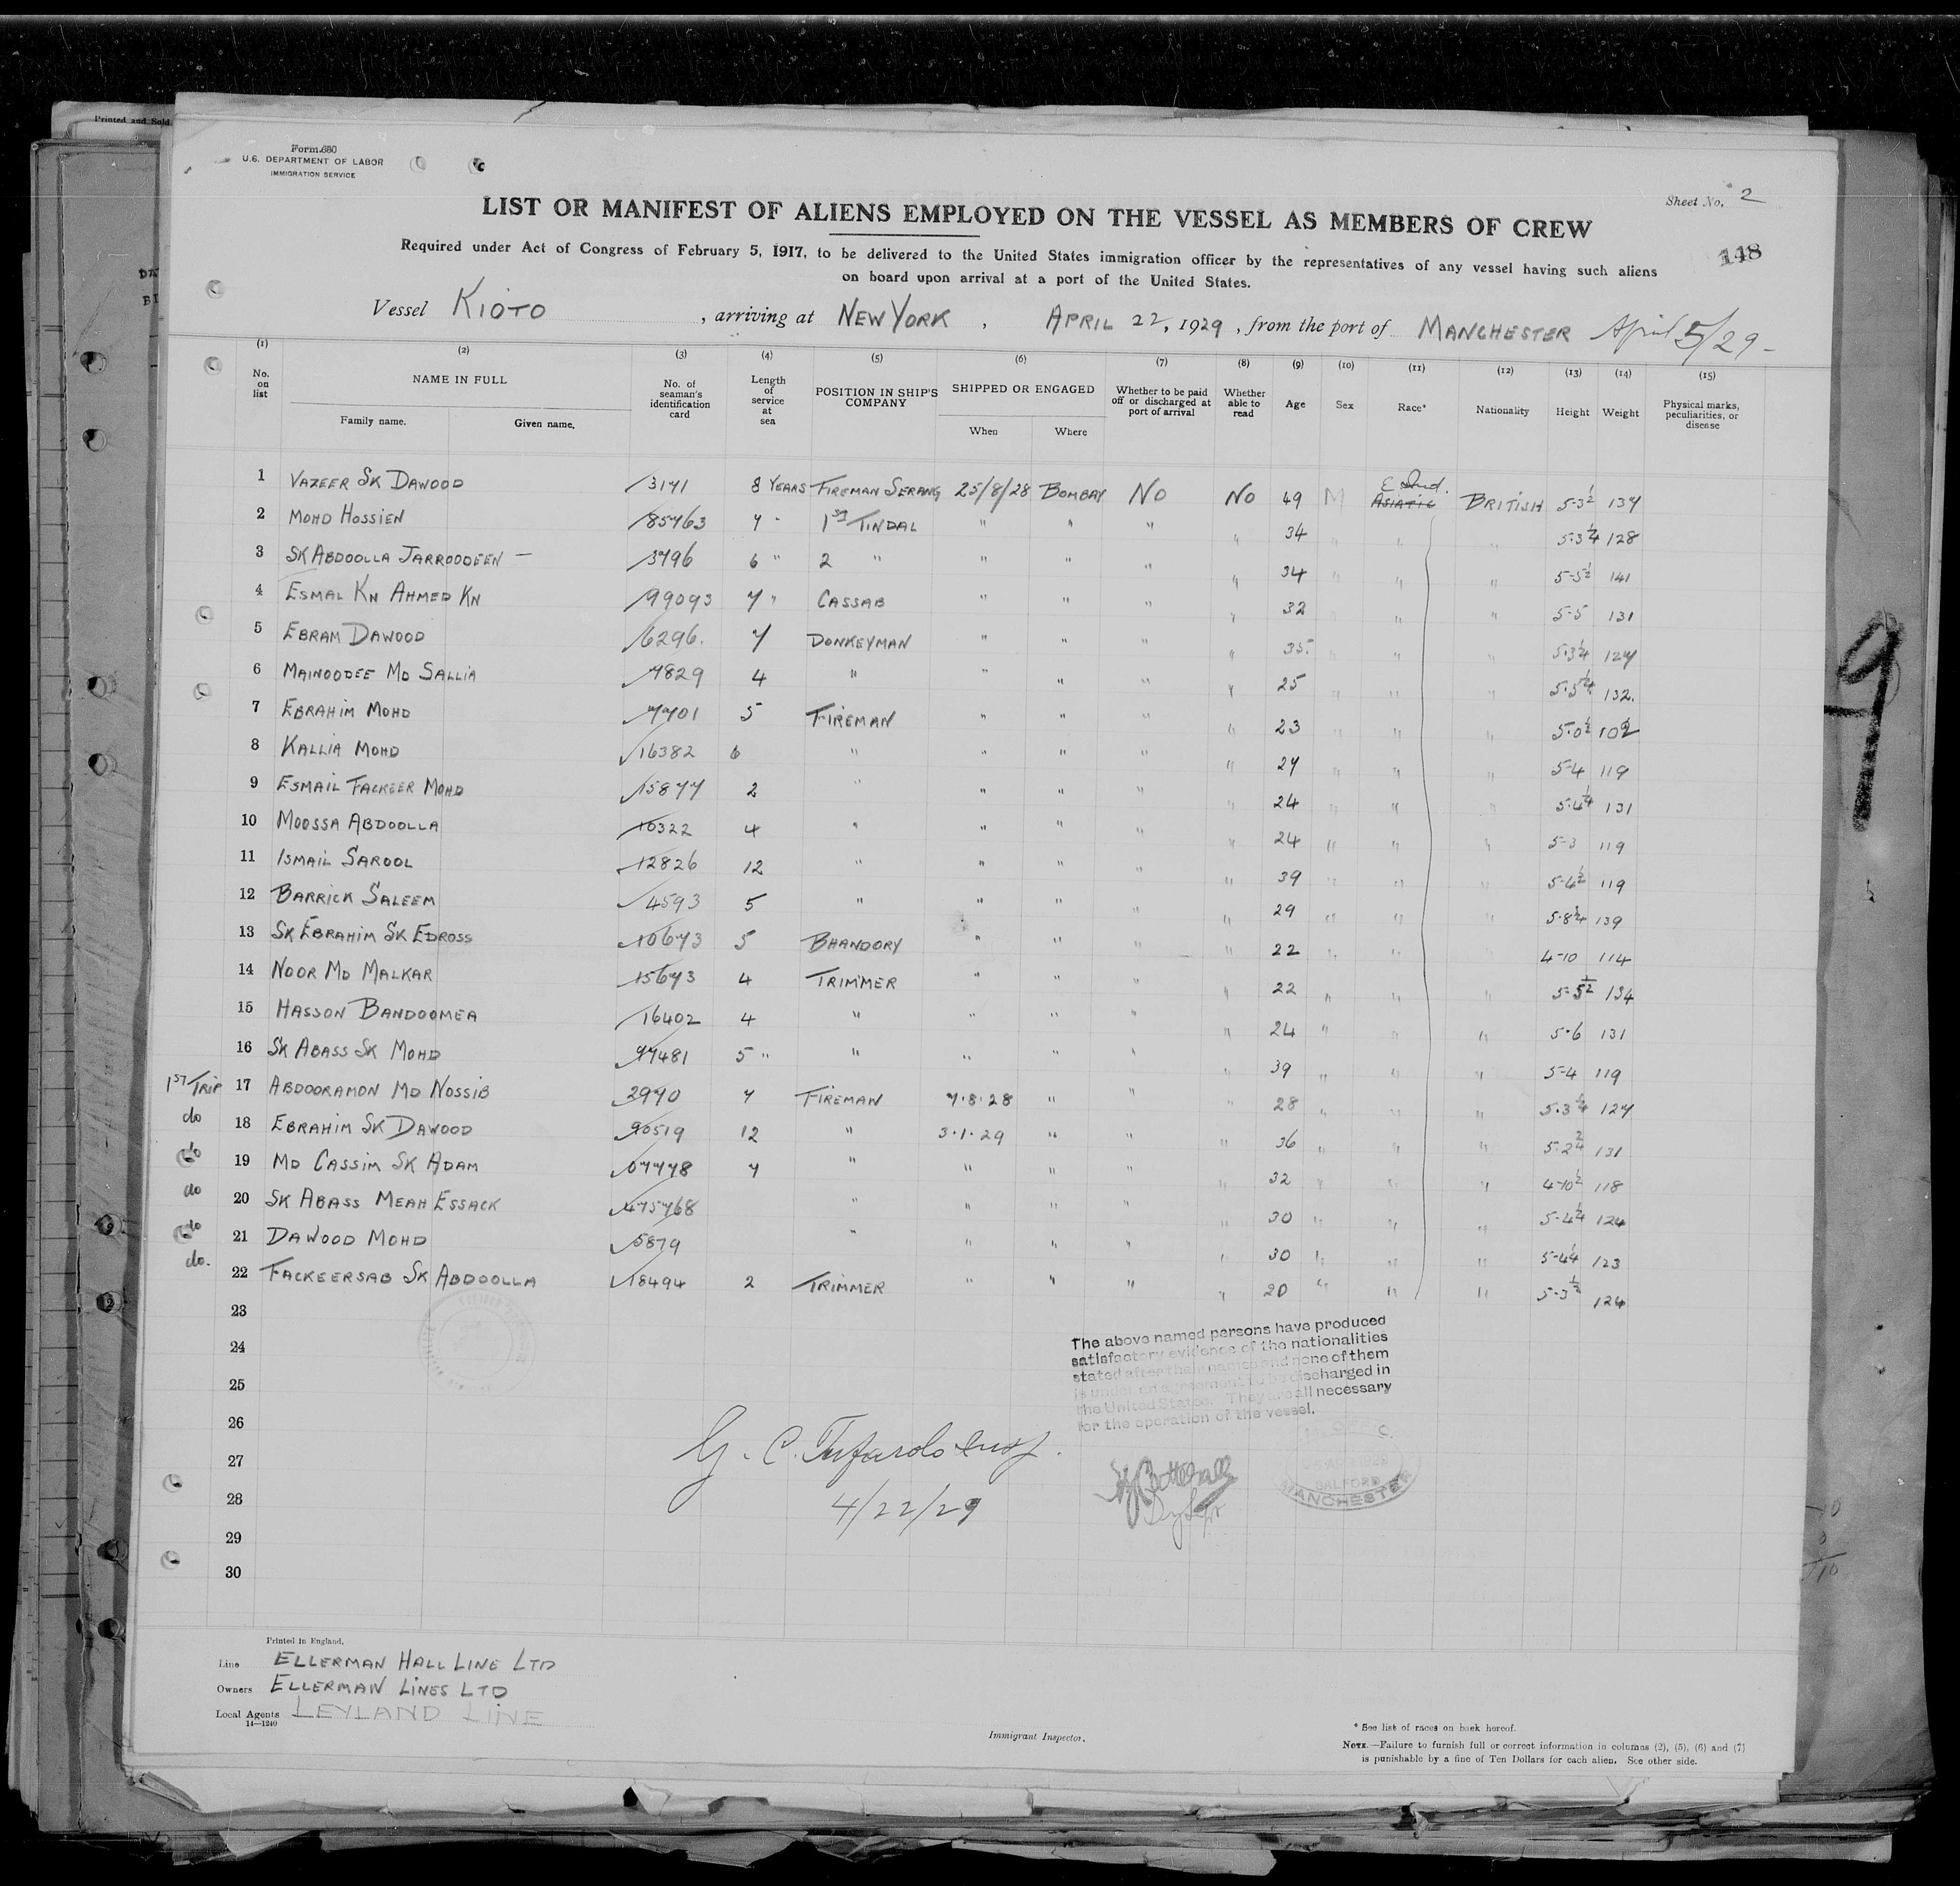 Printed and Sold
Form 680
U.S. DEPARTMENT OF LABOR
IMMIGRATION SERVICE
Sheet No. 2
LIST OR MANIFEST OF ALIENS EMPLOYED ON THE VESSEL AS MEMBERS OF CREW
148
Required under Act of Congress of February 5, 1917, to be delivered to the United States immigration officer by the representatives of any vessel having such aliens
on board upon arrival at a port of the United States.
Vessel KIOTO, arriving at NEW YORK, APRIL 22, 1929, from the port of MANCHESTER April 5/29-
(1) (2) (3) (4) (5) (6) (7) (8) (9) (10) (11) (12) (13) (14) (15)
No. on list NAME IN FULL Family name. Given name. No. of seaman's identification card Length of service at sea POSITION IN SHIP'S COMPANY SHIPPED OR ENGAGED When Where Whether to be paid off or discharged at port of arrival Whether able to read Age Sex Race* Nationality Height Weight Physical marks, peculiarities, or disease
1 VAZEER SK DAWOOD 3171 8 YEARS FIREMAN SERANG 25/8/28 BOMBAY NO NO 49 M E Ind. ASIATIC BRITISH 5-3½ 137
2 MOHD HOSSIEN 85763 7 " 1ST TINDAL " " " " 34 " " " 5-3¼ 128
3 SK ABDOOLLA JARROODEEN — 3796 6 " 2 " " " " " 34 " " " 5-5½ 141
4 ESMAL KN AHMED KN 99093 7 " CASSAB " " " " 32 " " 5-5 131
5 EBRAM DAWOOD 6296. 7 DONKEYMAN " " " " 35. " " " 5-3¼ 127
6 MAINOODEE MD SALLIA 7829 4 " " " " " 25 " " " 5-5¼ 132.
7 EBRAHIM MOHD 7701 5 FIREMAN " " " " 23 " " " 5-0½ 102
8 KALLIA MOHD 16382 6 " " " " " 27 " " " 5-4 119
9 ESMAIL FACKEER MOHD 15877 2 " " " " " 24 " " " 5-4¼ 131
10 MOOSSA ABDOOLLA 10322 4 " " " " " 24 " " " 5-3 119
11 ISMAIL SAROOL 12826 12 " " " " " 39 " " " 5-4½ 119
12 BARRICK SALEEM 4593 5 " " " " " 29 " " " 5-8¼ 139
13 SK EBRAHIM SK EDROSS 10673 5 BHANDORY " " " " 22 " " " 4-10 114
14 NOOR MD MALKAR 15673 4 TRIMMER " " " " 22 " " " 5-5½ 134
15 HASSON BANDOOMEA 16402 4 " " " " " 24 " " " 5-6 131
16 SK ABASS SK MOHD 97481 5 " " " " " " 39 " " " 5-4 119
1ST TRIP 17 ABDOORAMON MD NOSSIB 2970 7 FIREMAN 7-8-28 " " " 28 " " " 5-3¼ 127
do 18 EBRAHIM SK DAWOOD 90519 12 " 3-1-29 " " " 36 " " " 5-2¾ 131
do 19 MD CASSIM SK ADAM 07778 7 " " " " " 32 " " " 4-10½ 118
do 20 SK ABASS MEAH ESSACK 475768 " " " " " 30 " " " 5-4¼ 124
do 21 DAWOOD MOHD 5879 " " " " " 30 " " " 5-4¼ 123
do. 22 FACKEERSAB SK ABDOOLLA 18494 2 TRIMMER " " " " 20 " " " 5-3½ 124
23
24
25
26
27
28
29
30
The above named persons have produced
satisfactory evidence of the nationalities
stated after their names and none of them
is under an agreement to be discharged in
the United States. They are all necessary
for the operation of the vessel.
SALFORD
MANCHESTER
4/22/29
Printed in England.
Line ELLERMAN HALL LINE LTD
Owners ELLERMAN LINES LTD
Local Agents LEYLAND LINE
14—1240
Immigrant Inspector.
* See list of races on back hereof.
NOTE.—Failure to furnish full or correct information in columns (2), (5), (6) and (7)
is punishable by a fine of Ten Dollars for each alien. See other side.
9